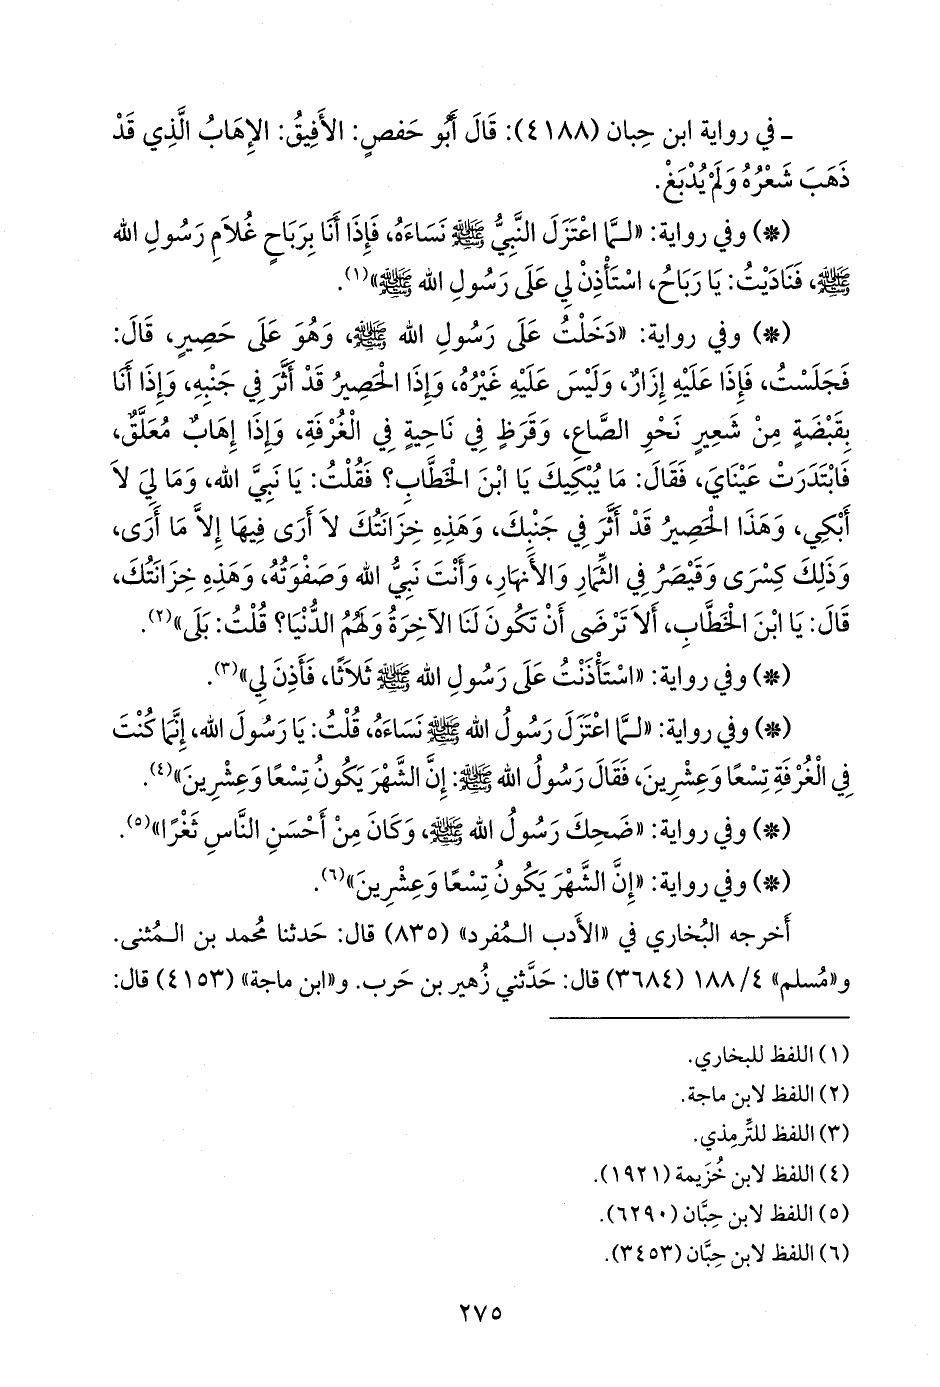 ـ في رواية ابن حِبان (٤١٨٨): قَالَ أَبُو حَفصٍ: الأَفِيقُ: الإِهَابُ الَّذِي قَدْ
ذَهَبَ شَعْرُهُ وَلَمْ يُدْبَغْ.
(*) وفي رواية: «لـمَّا اعْتَزَلَ النَّبِيُّ ﷺ نَسَاءَهُ، فَإِذَا أَنَا بِرَبَاحٍ غُلاَمِ رَسُولِ الله
ﷺ، فَنَادَيْتُ: يَا رَبَاحُ، اسْتَأْذِنْ لِي عَلَى رَسُولِ الله ﷺ»(١).
(*) وفي رواية: «دَخَلْتُ عَلَى رَسُولِ الله ﷺ، وَهُوَ عَلَى حَصِيرٍ، قَالَ:
فَجَلَسْتُ، فَإِذَا عَلَيْهِ إِزَارٌ، وَلَيْسَ عَلَيْهِ غَيْرُهُ، وَإِذَا الْحَصِيرُ قَدْ أَثَّرَ فِي جَنْبِهِ، وَإِذَا أَنَا
بِقَبْضَةٍ مِنْ شَعِيرٍ نَحْوِ الصَّاعِ، وَقَرَظٍ فِي نَاحِيةٍ فِي الْغُرْفَةِ، وَإِذَا إِهَابٌ مُعَلَّقٌ،
فَابْتَدَرَتْ عَيْنَايَ، فَقَالَ: مَا يُبْكِيكَ يَا ابْنَ الْخَطَّابِ؟ فَقُلْتُ: يَا نَبِيَّ الله، وَمَا لِيَ لاَ
أَبْكِي، وَهَذَا الْحَصِيرُ قَدْ أَثَّرَ فِي جَنْبِكَ، وَهَذِهِ خِزَانَتُكَ لاَ أَرَى فِيهَا إِلاَّ مَا أَرَى،
وَذَلِكَ كِسْرَى وَقَيْصَرُ فِي الثِّمَارِ وَالأَنهَارِ، وَأَنْتَ نَبِيُّ الله وَصَفْوَتُهُ، وَهَذِهِ خِزَانَتُكَ،
قَالَ: يَا ابْنَ الْخَطَّابِ، أَلاَ تَرْضَى أَنْ تَكُونَ لَنَا الآخِرَةُ وَلَهُمُ الدُّنْيَا؟ قُلْتُ: بَلَى»(٢).
(*) وفي رواية: «اسْتَأْذَنْتُ عَلَى رَسُولِ الله ﷺ ثَلاَثًا، فَأَذِنَ لِي»(٣).
(*) وفي رواية: «لـمَّا اعْتَزَلَ رَسُولُ الله ﷺ نَسَاءَهُ، قُلْتُ: يَا رَسُولَ الله، إِنَّمَا كُنْتَ
فِي الْغُرْفَةِ تِسْعًا وَعِشْرِينَ، فَقَالَ رَسُولُ الله ﷺ: إِنَّ الشَّهْرَ يَكُونُ تِسْعًا وَعِشْرِينَ»(٤).
(*) وفي رواية: «ضَحِكَ رَسُولُ الله ﷺ، وَكَانَ مِنْ أَحْسَنِ النَّاسِ ثَغْرًا»(٥).
(*) وفي رواية: «إِنَّ الشَّهْرَ يَكُونُ تِسْعًا وَعِشْرِينَ»(٦).
أَخرجه البُخاري في «الأَدب الـمُفرد» (٨٣٥) قال: حَدثنا مُحمد بن الـمُثنى.
و«مُسلم» ٤/ ١٨٨ (٣٦٨٤) قال: حَدَّثني زُهير بن حَرب. و«ابن ماجة» (٤١٥٣) قال:
(١) اللفظ للبخاري.
(٢) اللفظ لابن ماجة.
(٣) اللفظ للتِّرمِذي.
(٤) اللفظ لابن خُزَيمة (١٩٢١).
(٥) اللفظ لابن حِبَّان (٦٢٩٠).
(٦) اللفظ لابن حِبَّان (٣٤٥٣).
٢٧٥